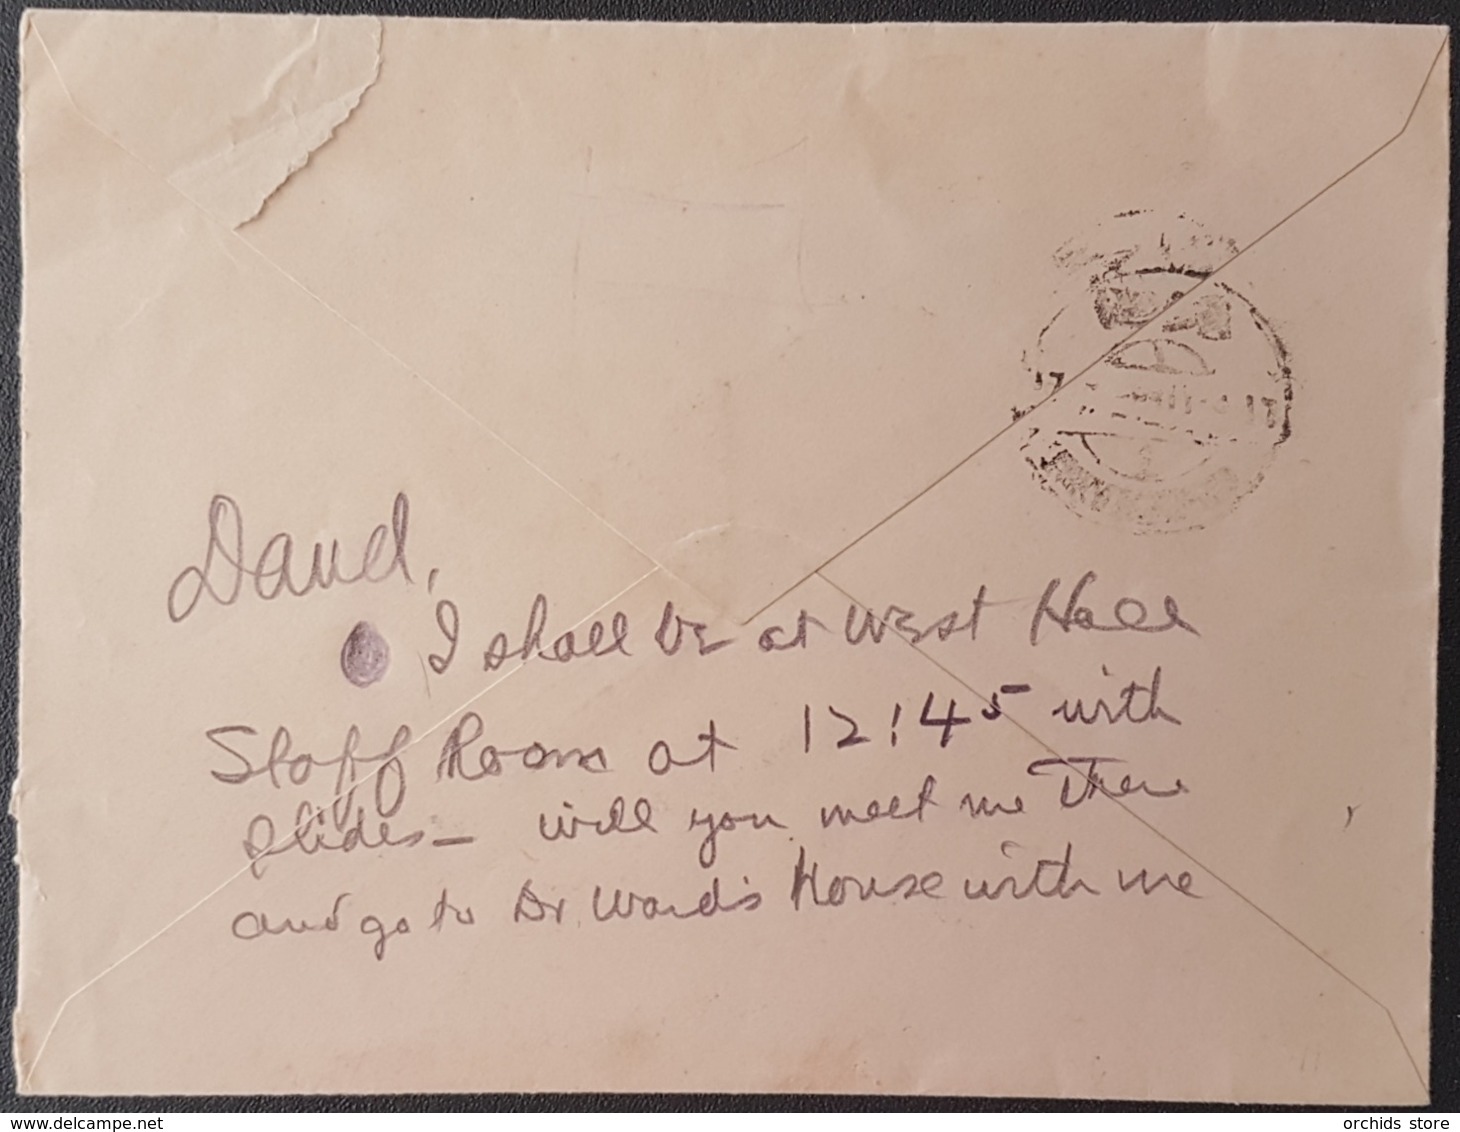 David,
I shall be at West Hall
Staff Room at 12:45 with
slides – will you meet me there
and go to Dr Ward's House with me
www.delcampe.net
orchids store